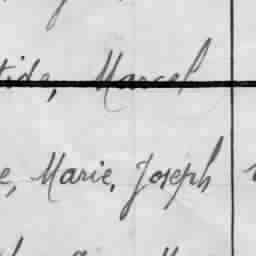 tide, Marcel
e, Marie, Joseph